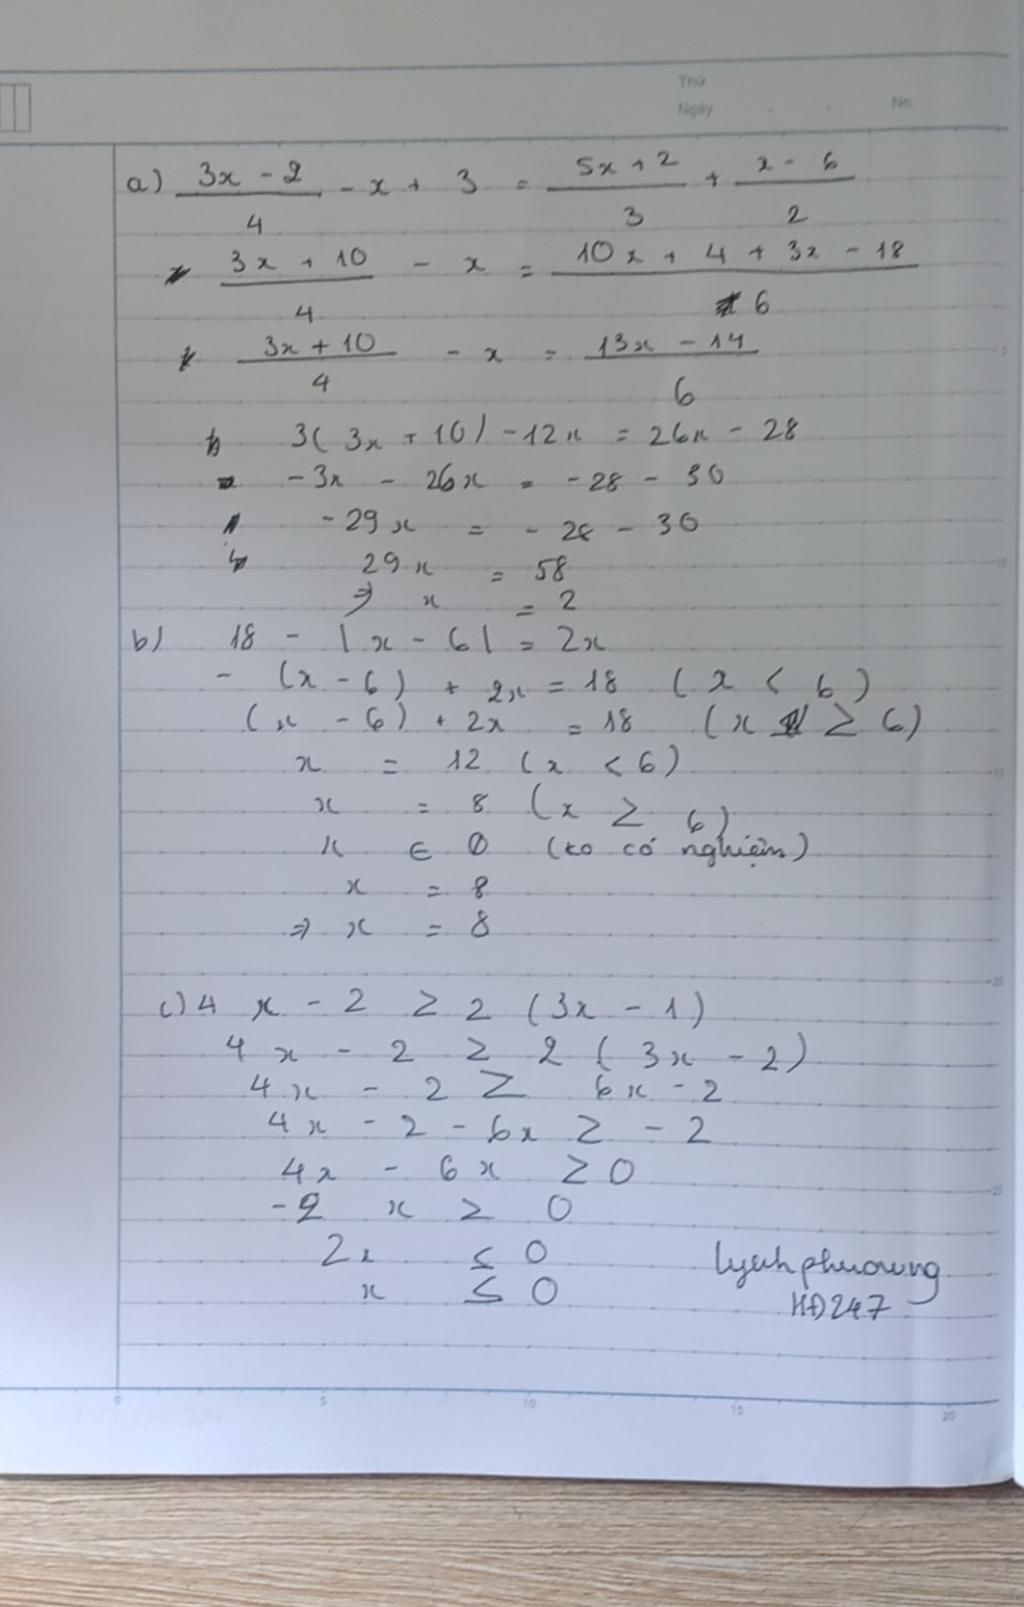 Thứ
Ngày . . No.
a) (3x - 2)/4 - x + 3 = (5x + 2)/3 + (x - 6)/2
(3x + 10)/4 - x = (10x + 4 + 3x - 18)/6
(3x + 10)/4 - x = (13x - 14)/6
3(3x + 10) - 12x = 26x - 28
-3x - 26x = -28 - 30
-29x = -28 - 30
29x = 58
=> x = 2
b) 18 - |x - 6| = 2x
- (x - 6) + 2x = 18 (x < 6)
(x - 6) + 2x = 18 (x ≥ 6)
x = 12 (x < 6)
x = 8 (x ≥ 6)
x ∈ 0 (ko có nghiệm)
x = 8
=> x = 8
c) 4x - 2 ≥ 2(3x - 1)
4x - 2 ≥ 2(3x - 2)
4x - 2 ≥ 6x - 2
4x - 2 - 6x ≥ -2
4x - 6x ≥ 0
-2x ≥ 0
2x ≤ 0
x ≤ 0
HĐ247
0 5 10 15 20